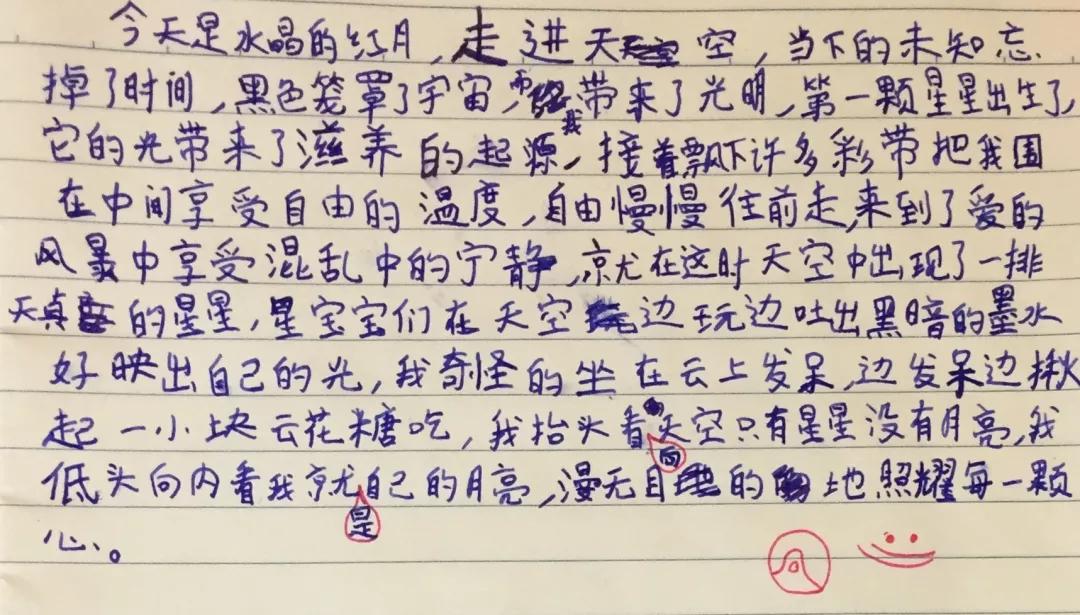 今天是水晶的红月,走进天空,当下的未知忘
掉了时间,黑色笼罩了宇宙,而我带来了光明,第一颗星星出生了,
它的光带来了滋养的起源,接着飘下许多彩带把我围
在中间享受自由的温度,自由慢慢往前走,来到了爱的
风暴中享受混乱中的宁静,就在这时天空中出现了一排
天真的星星,星宝宝们在天空边玩边吐出黑暗的墨水
好映出自己的光,我奇怪的坐在云上发呆,边发呆边揪
起一小块云花糖吃,我抬头看向天空只有星星没有月亮,我
低头向内看我就是自己的月亮,漫无目的地照耀每一颗
心。